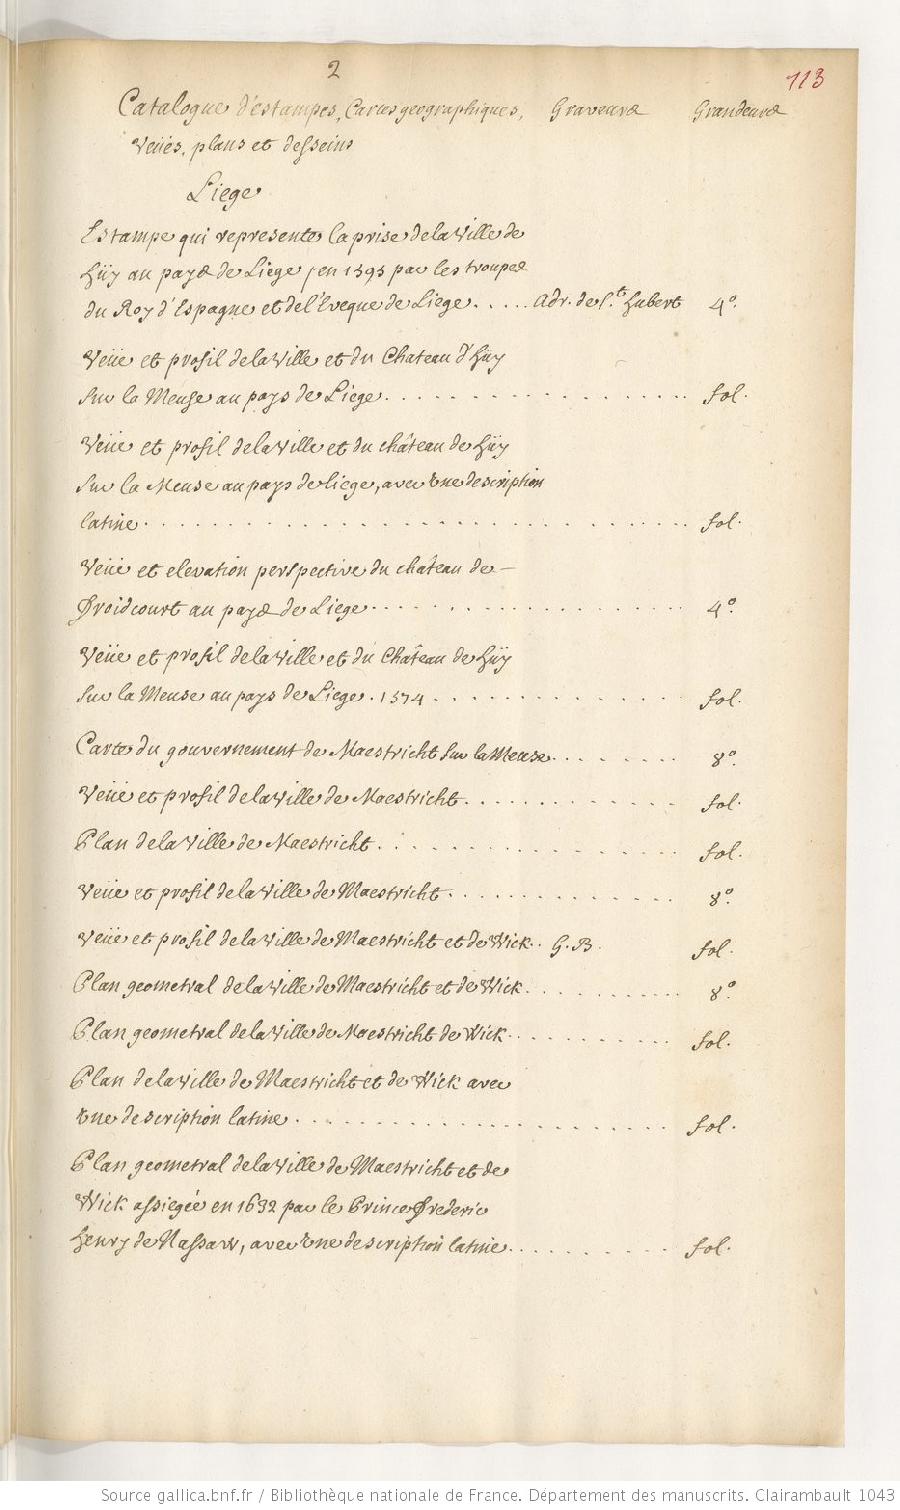 2
113
Catalogue d'estampes, Cartes geographiques, Graveurs Grandeurs
Veües, plans et desseins
Liege
Estampe qui represente la prise de la Ville de
Hüy au pays de Liege, en 1595 par les troupes
du Roy d'Espagne et de l'Eveque de Liege..... adr. de St. Hubert 4°.
Veüe et profil de la Ville et du Chateau d'Hüy
sur la Meuse au pays de Liege................. fol.
Veüe et profil de la Ville et du château de Hüy
sur la Meuse au pays de liege, avec une description
latine................................ fol.
Veüe et elevation perspective du château de
Froidcourt au pays de Liege................. 4°.
Veüe et profil de la Ville et du Château de Hüy
sur la Meuse au pays de Liege. 1574............. fol.
Carte du gouvernement de Maestricht sur la Meuse........ 8°.
Veüe et profil de la Ville de Maestricht............ fol.
Plan de la Ville de Maestricht................ fol.
Veüe et profil de la Ville de Maestricht............ 8°.
Veüe et profil de la Ville de Maestricht et de Wick.. G. B. fol.
Plan geometral de la Ville de Maestricht et de Wick......... 8°.
Plan geometral de la Ville de Maestricht de Wick.......... fol.
Plan de la Ville de Maestricht et de Wick avec
une description latine..................... fol.
Plan geometral de la Ville de Maestricht et de
Wick assiegée en 1632 par le Prince Frederic
Henry de Nassaw, avec une description latine.......... fol.
Source gallica.bnf.fr / Bibliothèque nationale de France. Département des manuscrits. Clairambault 1043